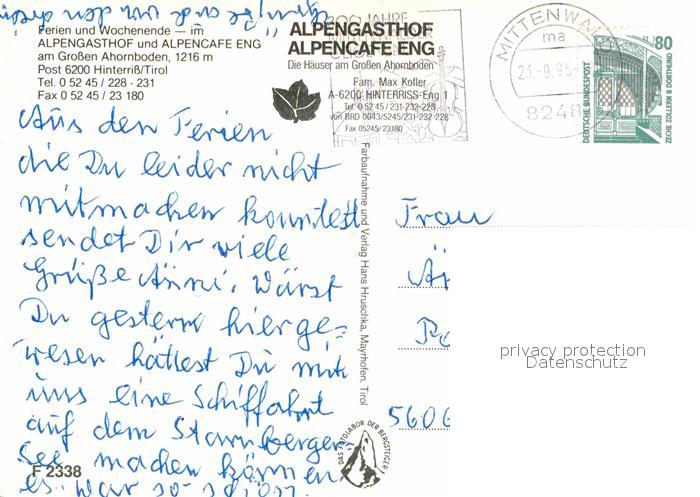 Ferien und Wochenende — im
ALPENGASTHOF und ALPENCAFE ENG
am Großen Ahornboden, 1216 m
Post 6200 Hinterriß/Tirol
Tel. 0 52 45 / 228 - 231
Fax 0 52 45 / 23 180
ALPENGASTHOF
ALPENCAFE ENG
Die Häuser am Großen Ahornboden
Fam. Max Kofler
A-6200 HINTERRISS-Eng 1
Tel. 0 52 45 / 231-232-228
von BRD 0043/5245/231-232-228
Fax 05245/23180
300 JAHRE
MITTENWALD
ma
8248
80
DEUTSCHE BUNDESPOST
ZECHE ZOLLERN II DORTMUND
Aus den Ferien
die Du leider nicht
mitmachen konntest
sendet Dir viele
Grüße Änni. Wärst
Du gestern hierge-
wesen hättest Du mit
uns eine Schiffahrt
auf dem Starnberger-
See machen können
es war so schön
Farbaufnahme und Verlag Hans Hruschka, Mayrhofen, Tirol
DAS FOTOLABOR DER BERGSTEIGER
F 2338
Frau
5606
privacy protection
Datenschutz